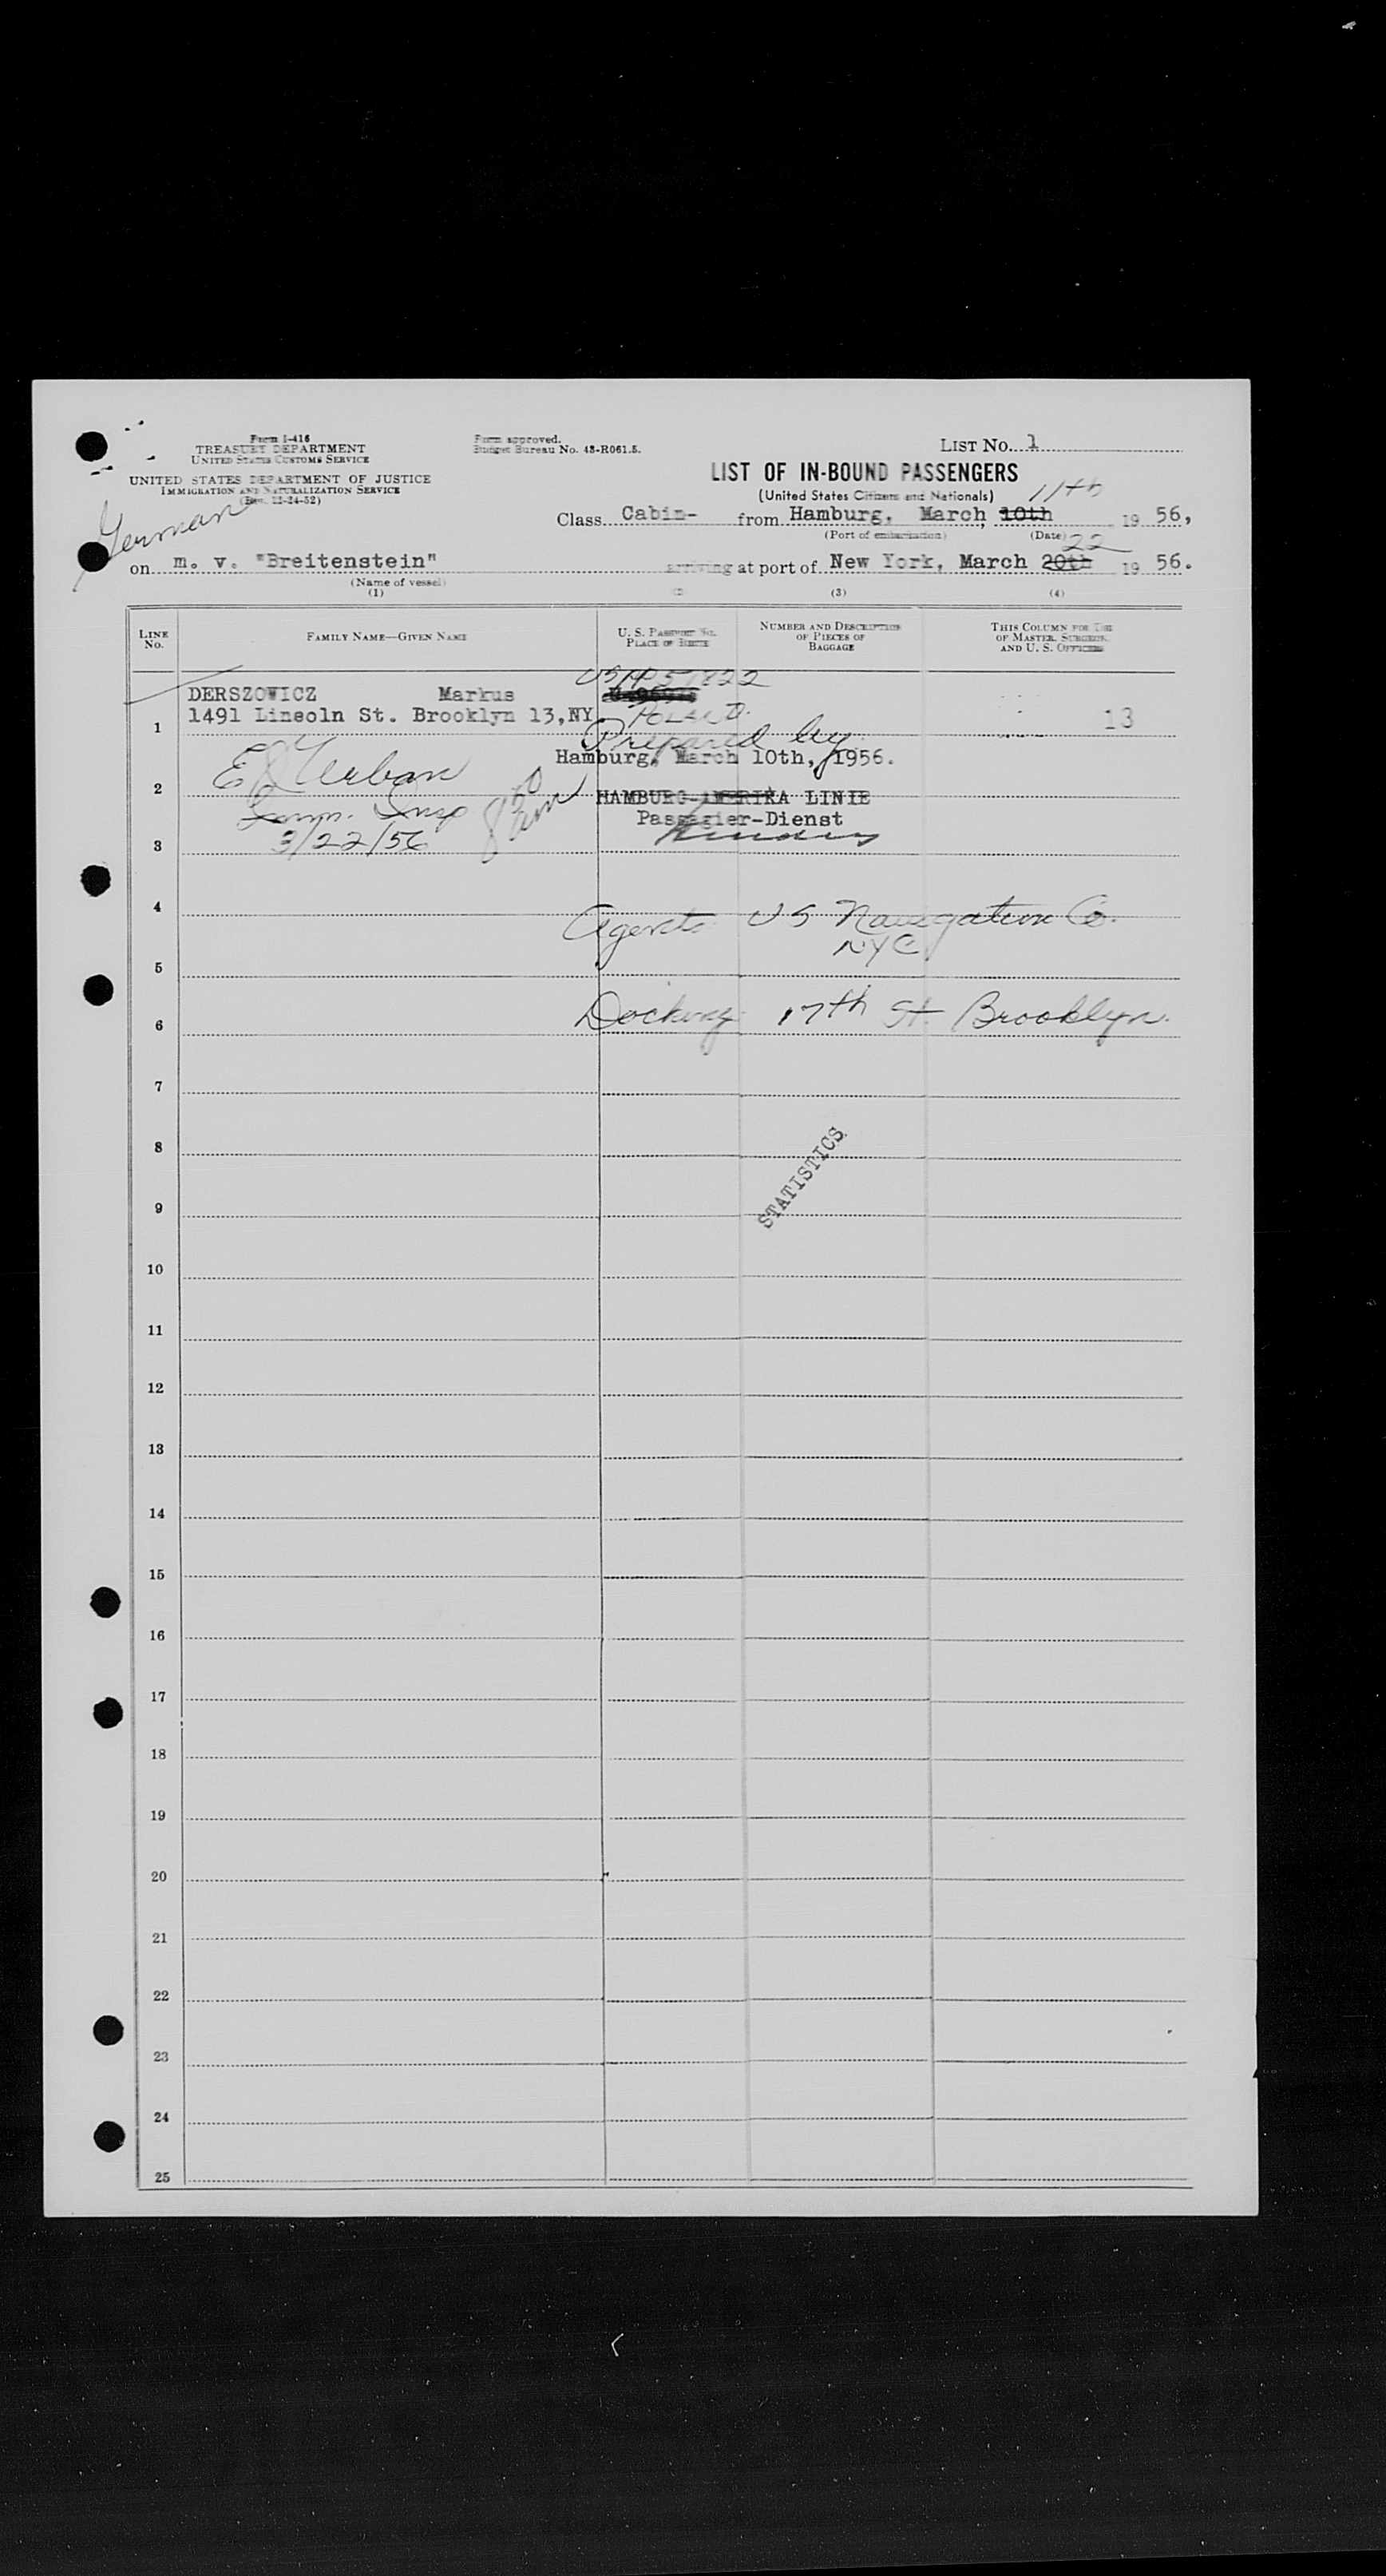 Form I-416
TREASURY DEPARTMENT
UNITED STATES CUSTOMS SERVICE
UNITED STATES DEPARTMENT OF JUSTICE
IMMIGRATION AND NATURALIZATION SERVICE
(Rev. 12-24-52)
Form approved.
Budget Bureau No. 43-R061.5.
LIST No. 1
LIST OF IN-BOUND PASSENGERS
(United States Citizens and Nationals)
11th
Class Cabin- from Hamburg, March 10th 1956,
(Port of embarkation) (Date)
German
22
on m. v. "Breitenstein" arriving at port of New York, March 20th 1956.
(Name of vessel)
(1) (2) (3) (4)
LINE No.
FAMILY NAME—GIVEN NAME
U. S. PASSPORT No. PLACE OF BIRTH
NUMBER AND DESCRIPTION OF PIECES OF BAGGAGE
THIS COLUMN FOR USE OF MASTER, SURGEON, AND U. S. OFFICERS
DERSZOWICZ Markus
1491 Linsoln St. Brooklyn 13,NY
Poland
1 13
Prepared by
Hamburg, March 10th, 1956.
E Urban
2
HAMBURG-AMERIKA LINIE
Imm. Insp
Passagier-Dienst
3/22/56
3
4
Agents US Navigation Co.
NYC
5
Docking 17th St. Brooklyn.
6
7
8
STATISTICS
9
10
11
12
13
14
15
16
17
18
19
20
21
22
23
24
25